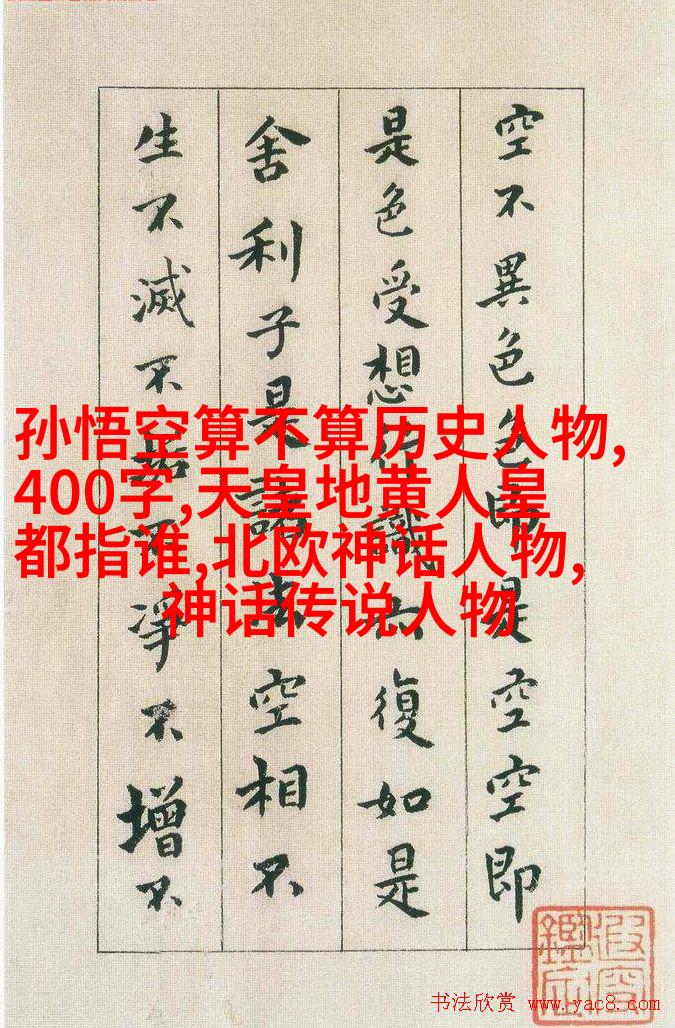 空不異色色即是空空即
是色受想行識亦復如是
舍利子是諸法空相不
生不滅不垢不淨不增不
孙悟空算不算历史人物,
400字,天皇地黄人皇
都指谁,北欧神话人物,
神话传说人物
书法欣赏 www.yac8.com